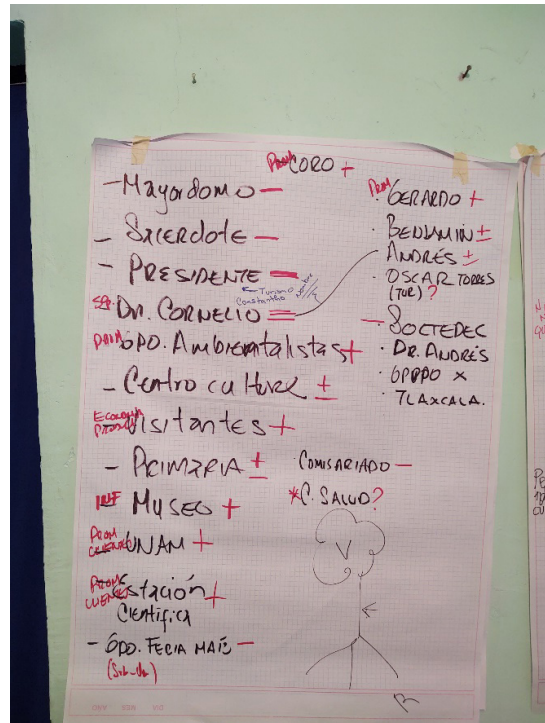 PROM CORO +
- Mayordomo -
- SACERDOTE -
- PRESIDENTE =
← Turismo
Constantes
DR. CORNELIO =
PROM GPO. Ambientalistas +
- Centro cultural ±
ECONOMIA
- Visitantes +
- PRIMARIA ±
INF MUSEO +
PROM
CUENTEO
- UNAM +
PROM
CUENTEO
- Estación +
Científica
- GPO. FERIA MAÍZ -
PROM
· GERARDO +
· BENJAMIN ±
· ANDRÉS ±
· OSCAR TORRES
(TUR) ?
- SOCTEDEC
· DR. ANDRÉS
· GPOPPO x
· TLAXCALA.
COMISARIADO -
*C. SALUD?
V
R